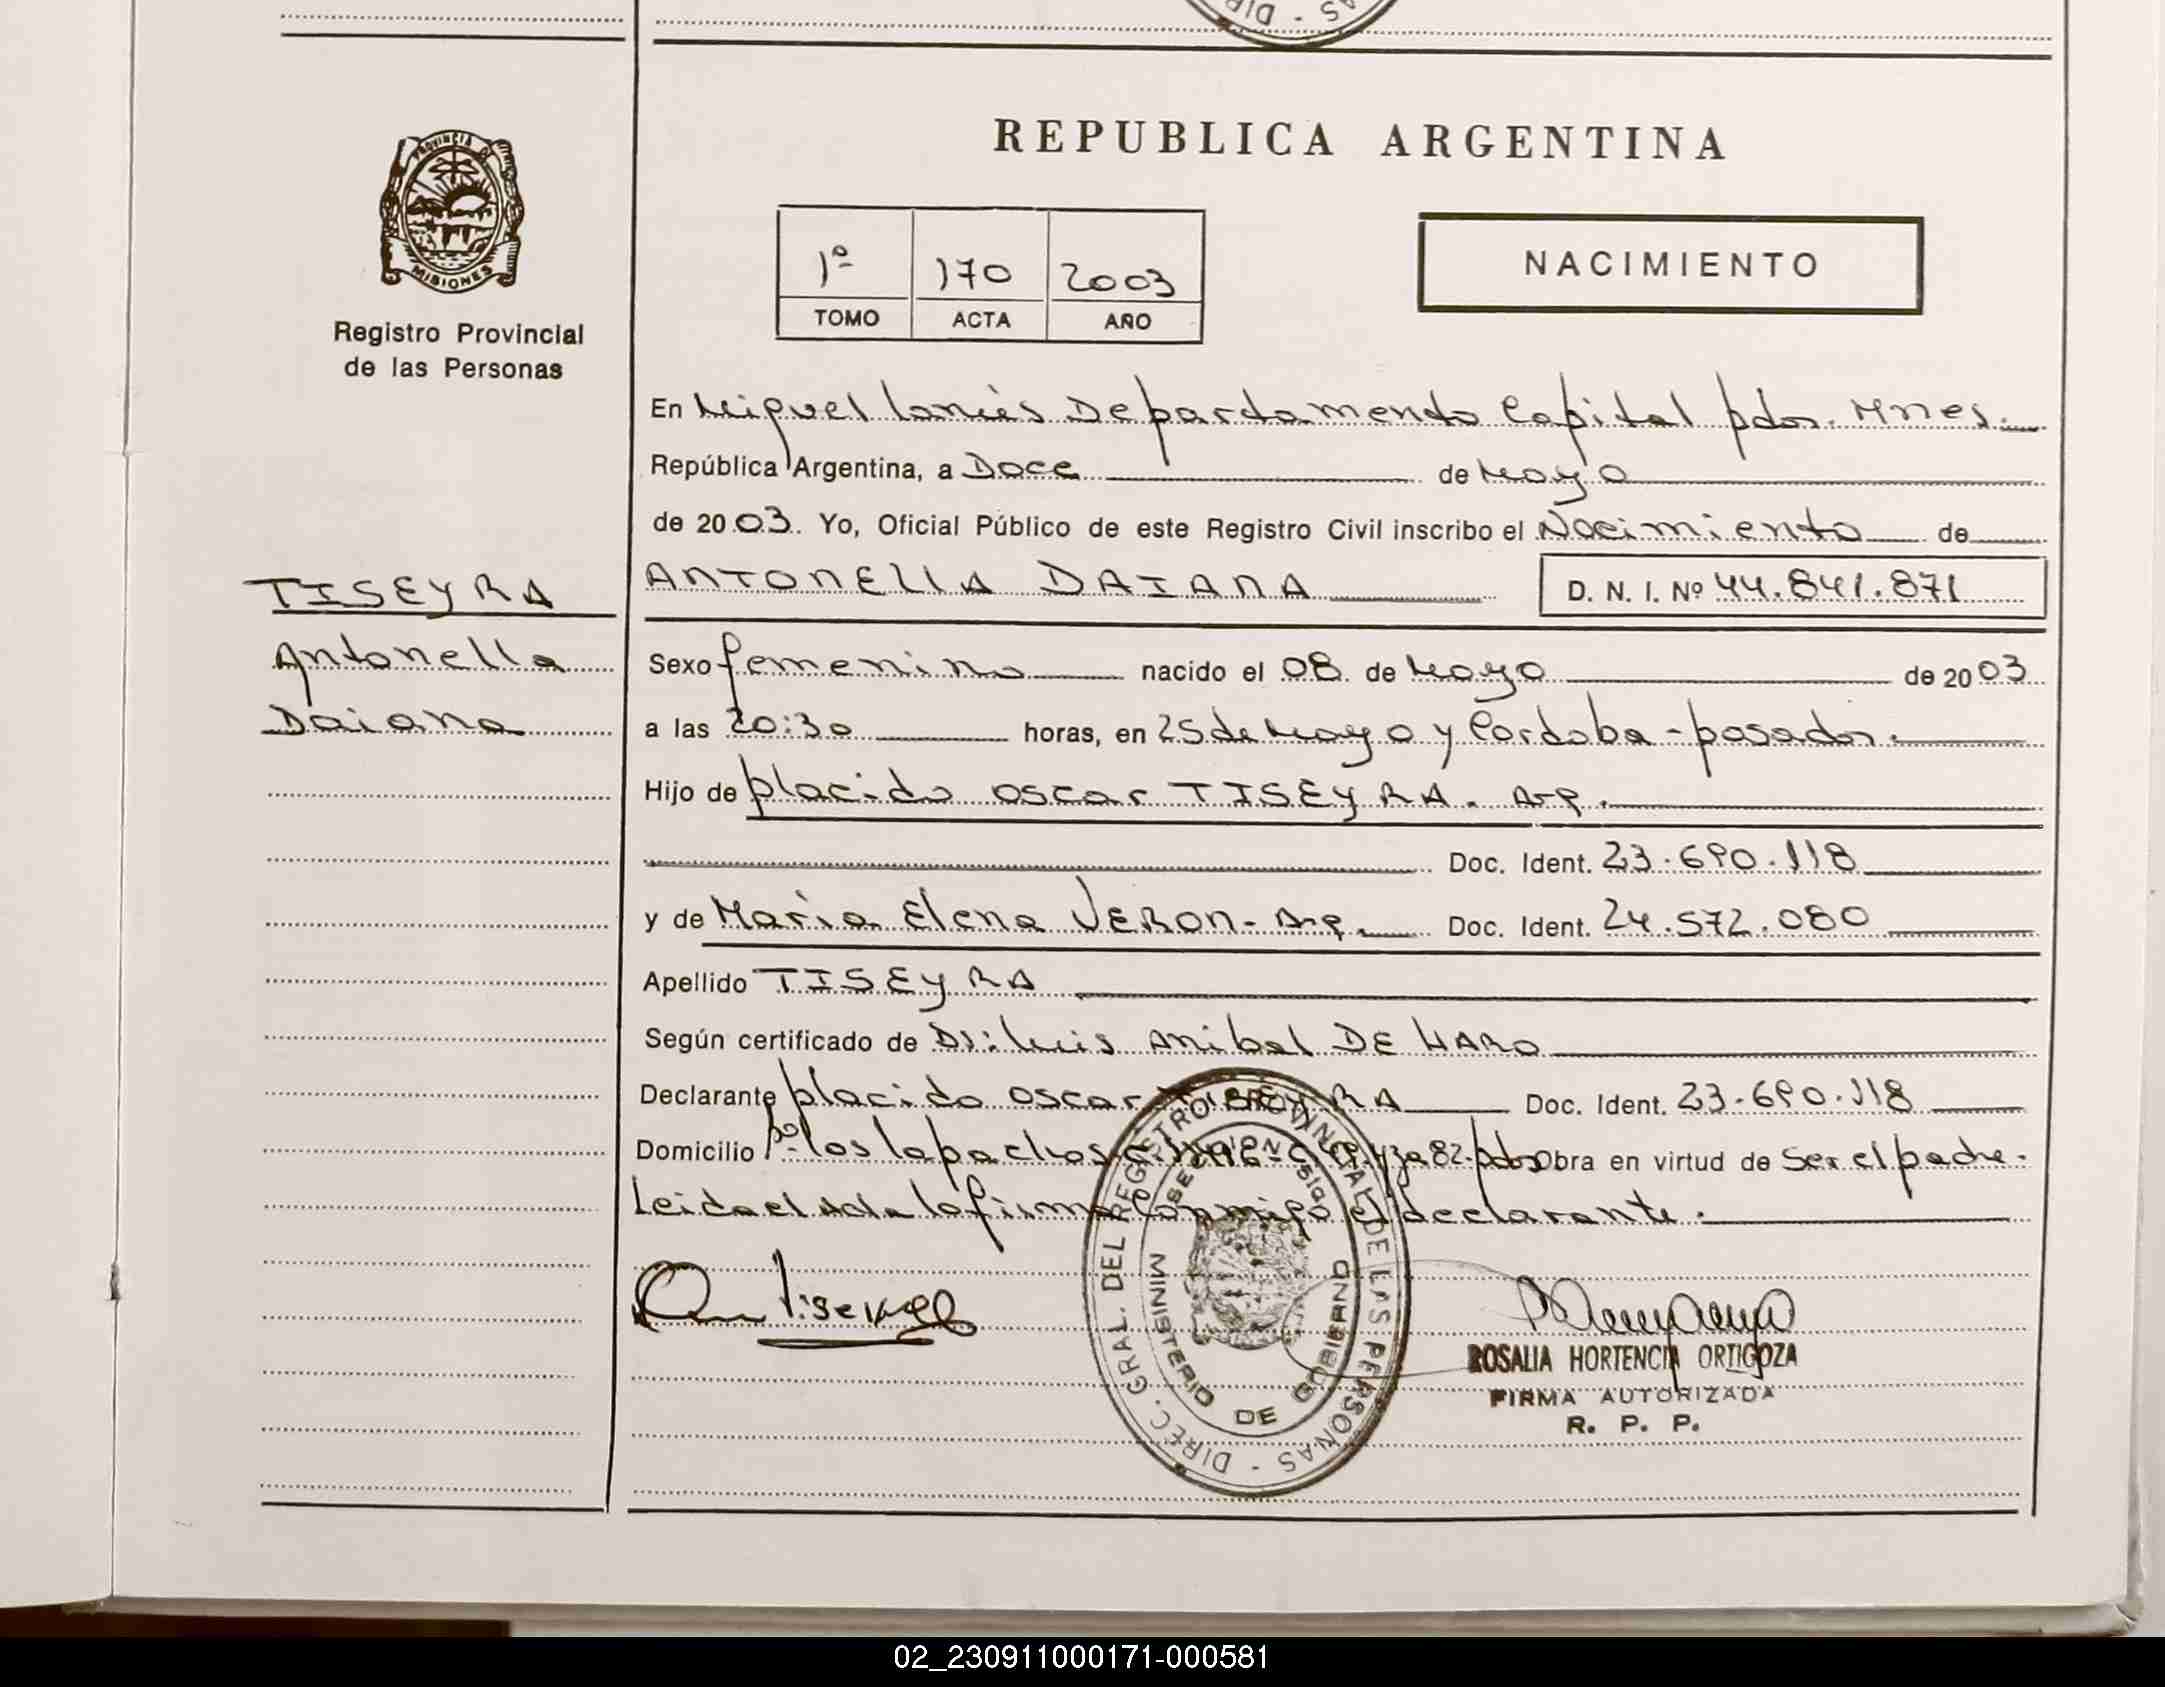 DIR - S
REPUBLICA ARGENTINA
PROVINCIA DE
MISIONES
Registro Provincial
de las Personas
1º 170 2003
TOMO ACTA AÑO
NACIMIENTO
En Miguel Lanús Departamento Capital pdas. Mnes.
República Argentina, a Doce de Mayo
de 2003. Yo, Oficial Público de este Registro Civil inscribo el Nacimiento de
TISEYRA
Antonella
Daiana
ANTONELLA DAIANA D. N. I. Nº 44.841.871
Sexo femenino nacido el 08 de Mayo de 2003
a las 20:30 horas, en 25 de Mayo y Cordoba - posadas.
Hijo de placido oscar TISEYRA. Arg.
Doc. Ident. 23.690.118
y de Maria Elena VERON - Arg. Doc. Ident. 24.572.080
Apellido TISEYRA
Según certificado de Dr: Luis Anibal DE HARO
Declarante placido oscar TISEYRA Doc. Ident. 23.690.118
Domicilio Bº los lapachos 82 - pdas Obra en virtud de Ser el padre.
Leida el Acta la firma Conmigo el declarante.
DIREC. GRAL. DEL REGISTRO PROVINCIAL DE LAS PERSONAS
MINISTERIO DE GOBIERNO
ROSALIA HORTENCIA ORTIGOZA
FIRMA AUTORIZADA
R. P. P.
02_230911000171-000581